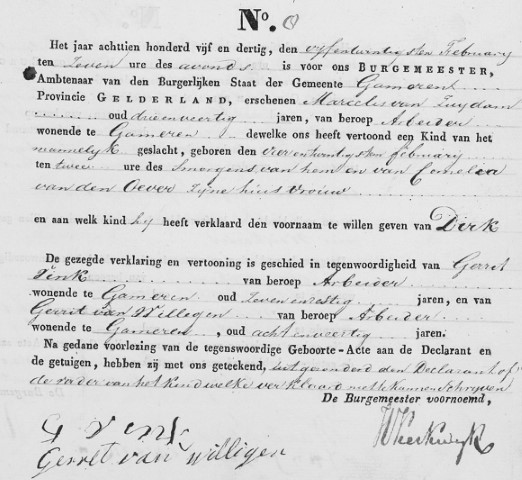 No. 8
Het jaar achttien honderd vijf en dertig, den vyfentwintigsten February
ten Zeven ure des avonds is voor ons BURGEMEESTER,
Ambtenaar van den Burgerlijken Staat der Gemeente Gameren
Provincie GELDERLAND, erschenen Marcelis van Zuydam
oud drieenveertig jaren, van beroep Arbeider
wonende te Gameren dewelke ons heeft vertoond een Kind van het
mannelyk geslacht, geboren den vierentwintigsten february
ten twee ure des smorgens van hem en van Cornelia
van den Oever Zyne huisvrouw
en aan welk kind hy heeft verklaard den voornaam te willen geven van Dirk
De gezegde verklaring en vertooning is geschied in tegenwoordigheid van Gerrit
Vink van beroep Arbeider
wonende te Gameren oud Zevenenzestig jaren, en van
Gerrit van Willigen van beroep Arbeider
wonende te Gameren, oud achtenveertig jaren.
Na gedane voorlezing van de tegenswoordige Geboorte-Acte aan de Declarant en
de getuigen, hebben zij met ons geteekend, uitgezonderd den Declarant of
de vader van het kind welke verklaard niet te kunnen schrijven
De Burgemeester voornoemd,
G Vink
Gerret van Willigen